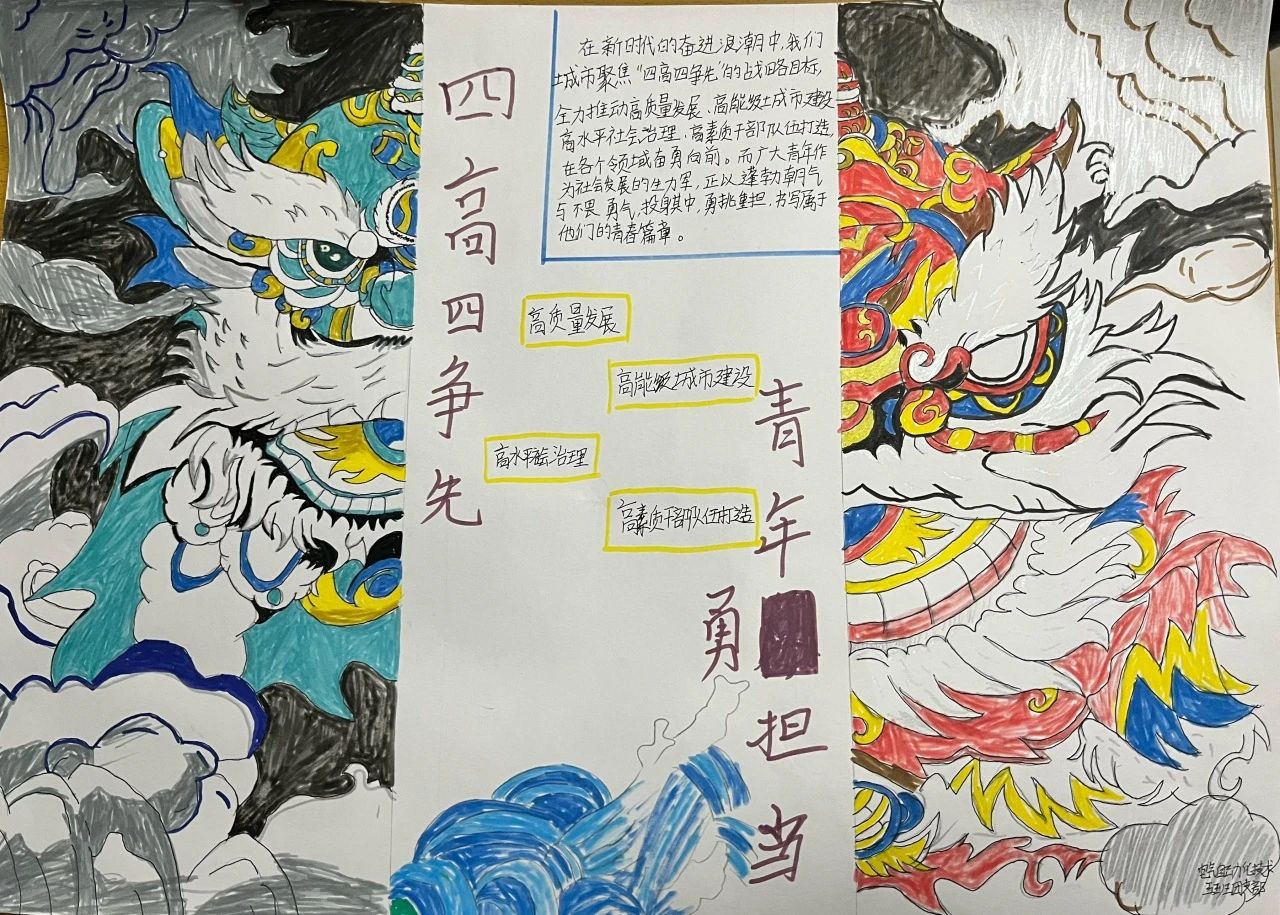 四高四争先
在新时代的奋进浪潮中,我们
城市聚焦“四高四争先”的战略目标,
全力推动高质量发展、高能级城市建设
高水平社会治理、高素质干部队伍打造,
在各个领域奋勇向前。而广大青年作
为社会发展的生力军,正以蓬勃朝气
与不畏勇气,投身其中,勇挑重担,书写属于
他们的青春篇章。
高质量发展
高能级城市建设
高水平社会治理
高素质干部队伍打造
青年勇担当
电气自动化技术
团支部